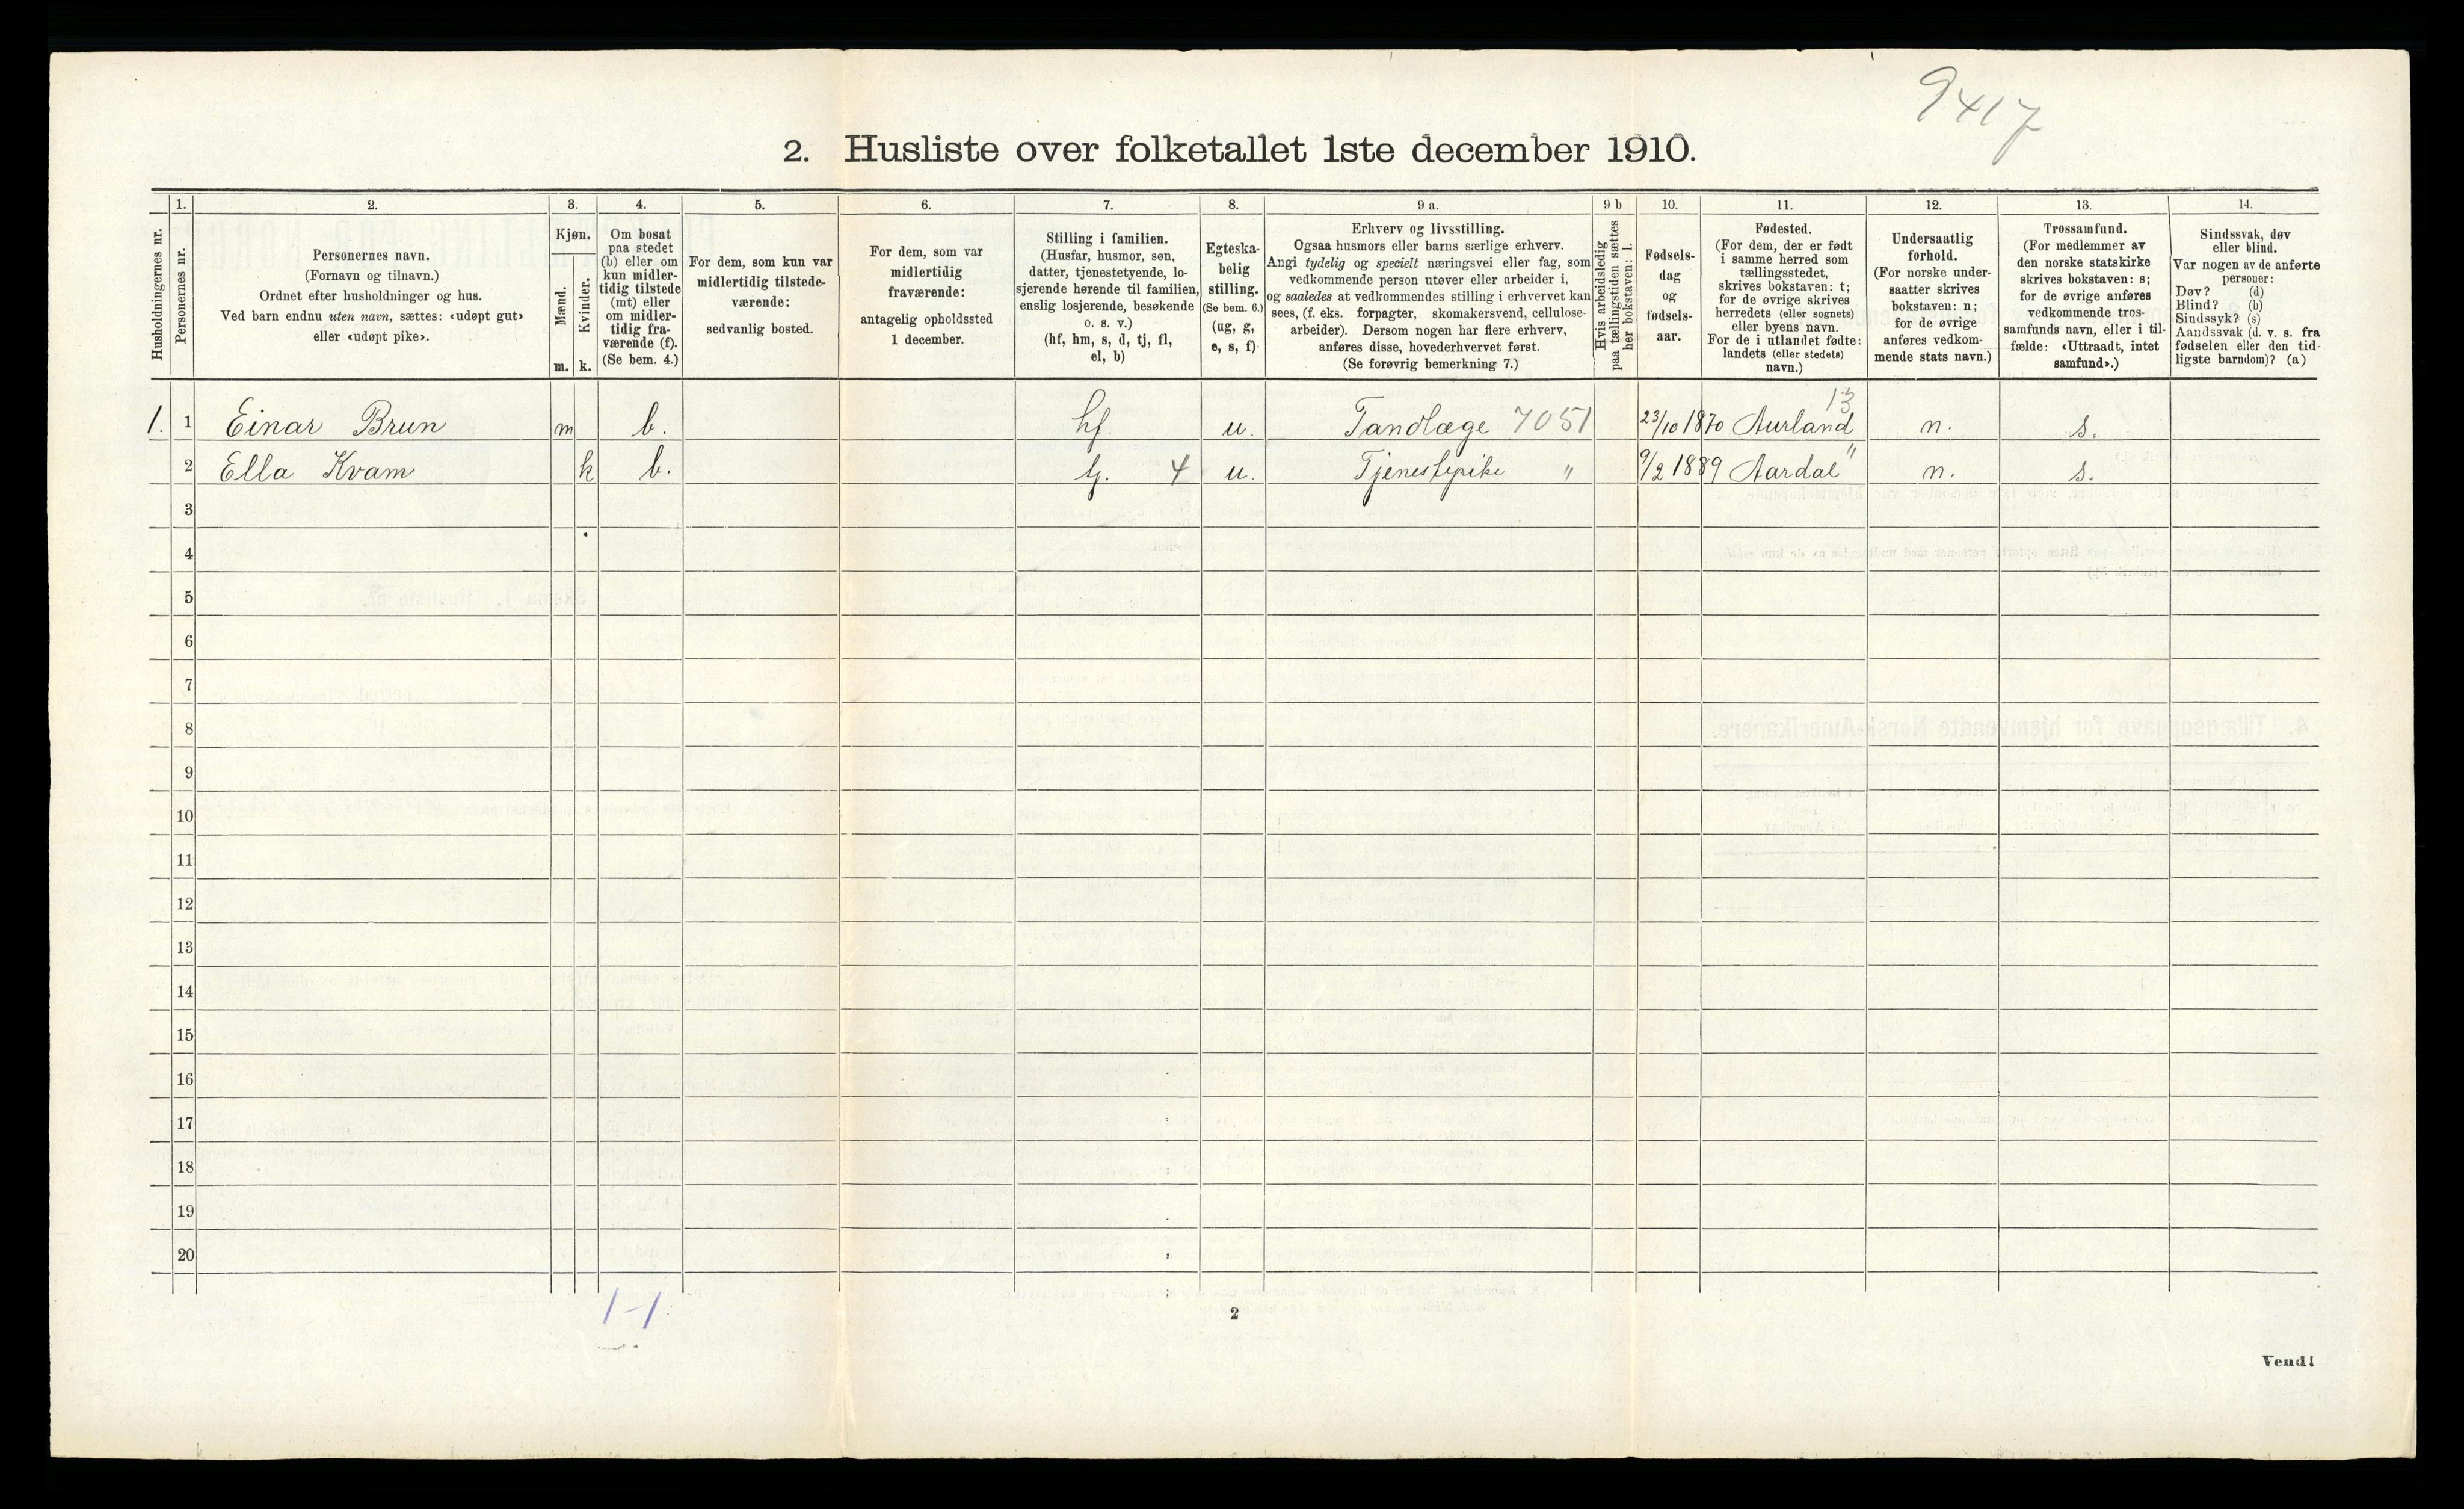 9417
2. Husliste over folketallet 1ste december 1910.
Husholdningernes nr.
1.
Personernes nr.
2.
Personernes navn.
(Fornavn og tilnavn.)
Ordnet efter husholdninger og hus.
Ved barn endnu uten navn, sættes: «udøpt gut»
eller «udøpt pike».
3.
Kjøn.
Mænd.
Kvinder.
m. k.
4.
Om bosat
paa stedet
(b) eller om
kun midler-
tidig tilstede
(mt) eller
om midler-
tidig fra-
værende (f).
(Se bem. 4.)
5.
For dem, som kun var
midlertidig tilstede-
værende:
sedvanlig bosted.
6.
For dem, som var
midlertidig
fraværende:
antagelig opholdssted
1 december.
7.
Stilling i familien.
(Husfar, husmor, søn,
datter, tjenestetyende, lo-
sjerende hørende til familien,
enslig losjerende, besøkende
o. s. v.)
(hf, hm, s, d, tj, fl,
el, b)
8.
Egteska-
belig
stilling.
(Se bem. 6.)
(ug, g,
e, s, f)
9 a.
Erhverv og livsstilling.
Ogsaa husmors eller barns særlige erhverv.
Angi tydelig og specielt næringsvei eller fag, som
vedkommende person utøver eller arbeider i,
og saaledes at vedkommendes stilling i erhvervet kan
sees, (f. eks. forpagter, skomakersvend, cellulose-
arbeider). Dersom nogen har flere erhverv,
anføres disse, hovederhvervet først.
(Se forøvrig bemerkning 7.)
9 b
Hvis arbeidsledig
paa tællingstiden sættes
her bokstaven: l.
10.
Fødsels-
dag
og
fødsels-
aar.
11.
Fødested.
(For dem, der er født
i samme herred som
tællingsstedet,
skrives bokstaven: t;
for de øvrige skrives
herredets (eller sognets)
eller byens navn.
For de i utlandet fødte:
landets (eller stedets)
navn.)
12.
Undersaatlig
forhold.
(For norske under-
saatter skrives
bokstaven: n;
for de øvrige
anføres vedkom-
mende stats navn.)
13.
Trossamfund.
(For medlemmer av
den norske statskirke
skrives bokstaven: s;
for de øvrige anføres
vedkommende tros-
samfunds navn, eller i til-
fælde: «Uttraadt, intet
samfund».)
14.
Sindssvak, døv
eller blind.
Var nogen av de anførte
personer:
Døv? (d)
Blind? (b)
Sindssyk? (s)
Aandssvak (d. v. s. fra
fødselen eller den tid-
ligste barndom)? (a)
13
1. 1 Einar Brun m b. hf. u. Tandlæge 7051 23/10 1870 Aurland n. s.
2 Ella Kvam k b. tj. 4 u. Tjenestepike " 9/2 1889 Aardal " n. s.
3
4
5
6
7
8
9
10
11
12
13
14
15
16
17
18
19
20
1-1
2
Vend!